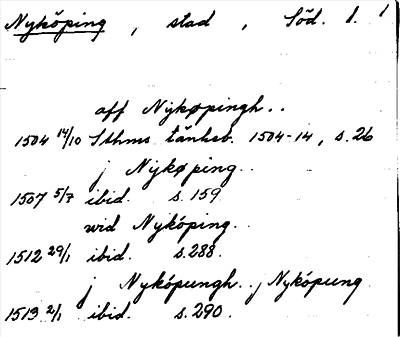 Nyköping, stad, Söd. l. 1
aff Nykøpingh..
1504 14/10 Sthms tänkeb. 1504-14, s. 26
j Nykøping..
1507 5/7 ibid. s. 159
wid Nyköping..
1512 29/1 ibid. s. 288.
j Nyköpungh.. j Nyköpung
1513 2/1 ibid. s. 290.